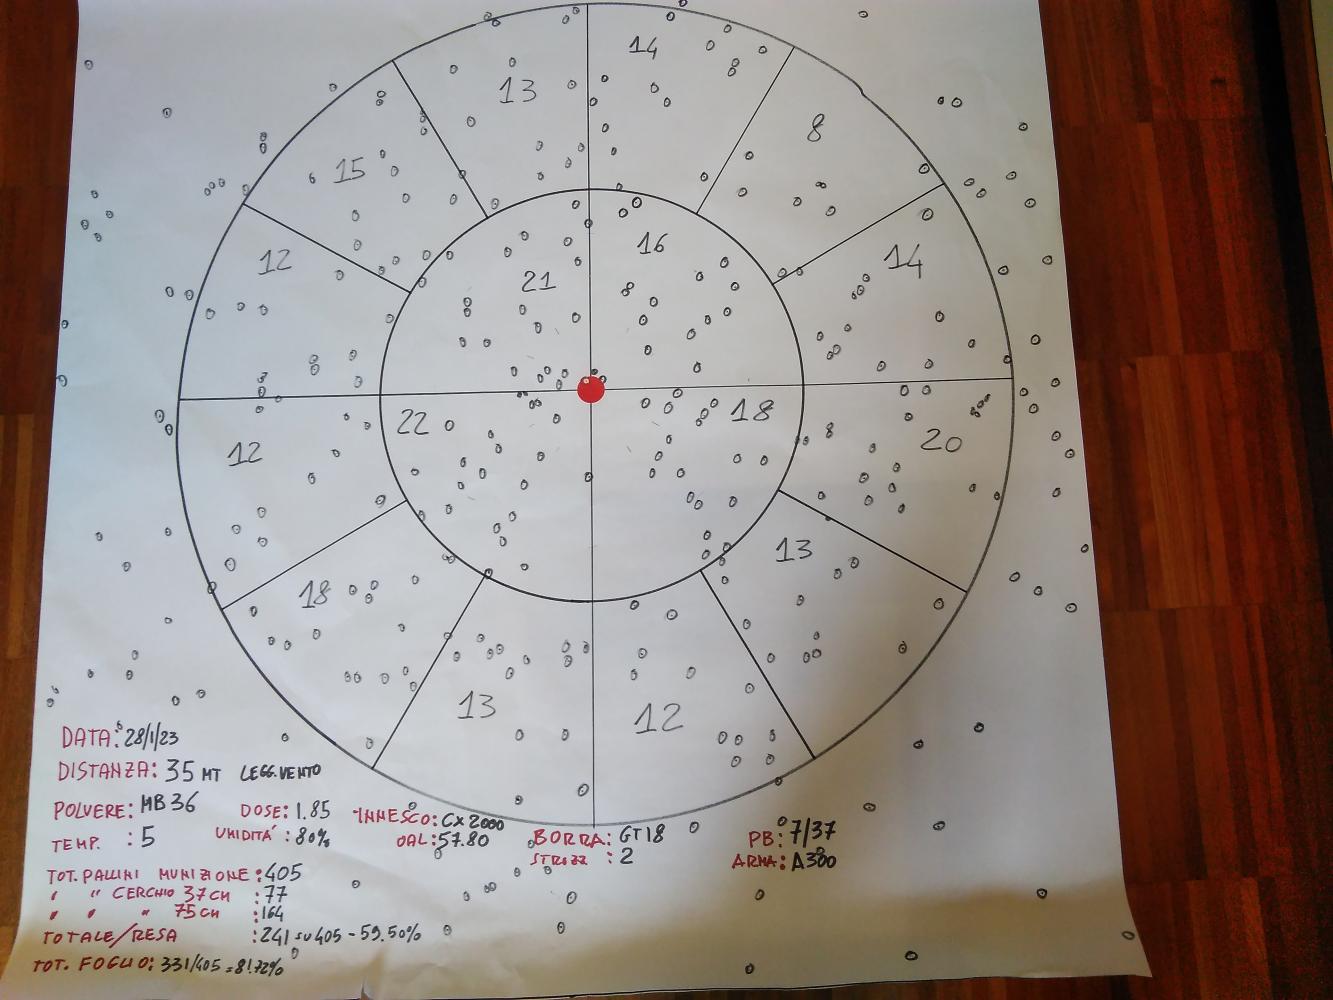 14
13
8
15
16
12
14
21
22
18
20
12
13
18
13
12
DATA: 28/1/23
DISTANZA: 35 MT LEGG. VENTO
POLVERE: MB36 DOSE: 1.85 INNESCO: CX2000 BORRA: GT18 PB: 7/37
TEMP. : 5 UMIDITÀ : 80% OAL: 57.80 STROZZ : 2 ARMA: A300
TOT. PALLINI MUNIZIONE : 405
" " CERCHIO 37 CM : 77
" " " 75 CM : 164
TOTALE/RESA : 241 SU 405 - 59.50%
TOT. FOGLIO: 331/405 = 81.72%